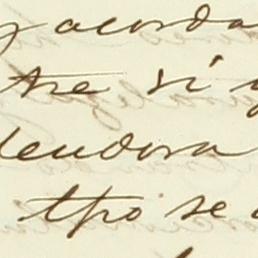 y acorda
tre si y
deudora
tpo se